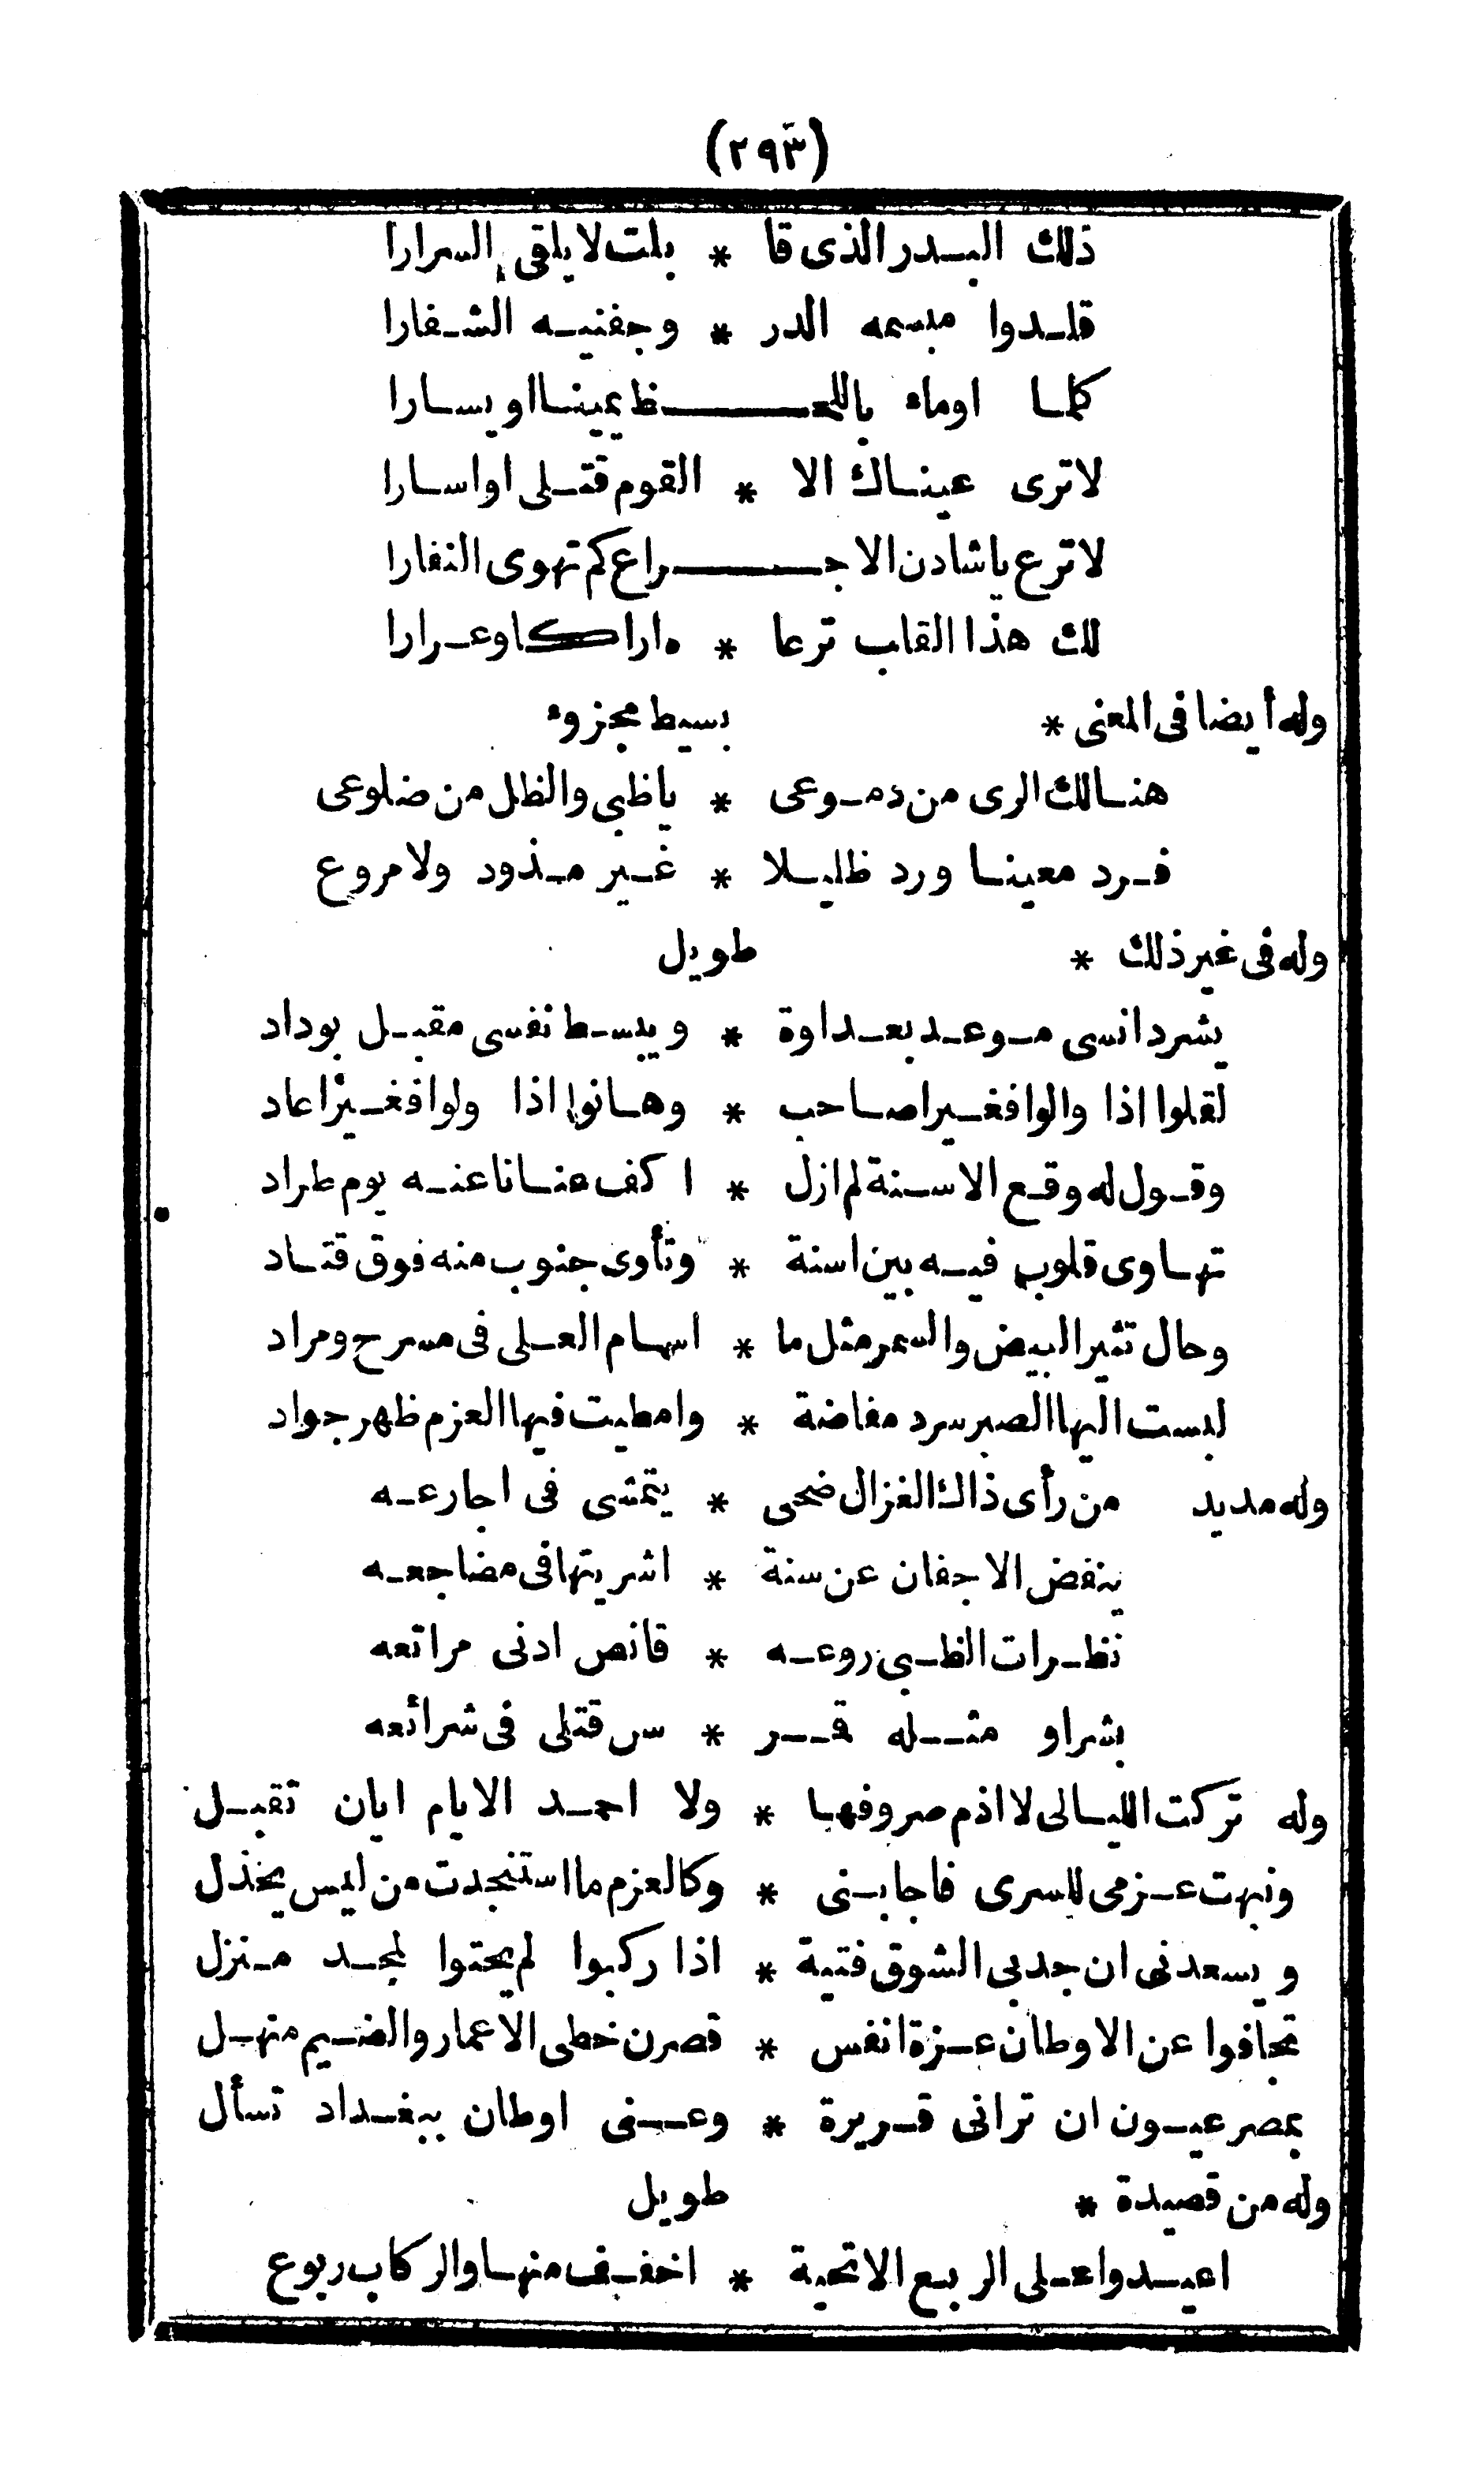 (٢٩٣)
ذلك البدر الذى قا * بلت لا يلقى السرارا
قلدوا مبسمه الدر * وجفنيه الشفارا
كلما اوماء باللحظ يمينا او يسارا
لا ترى عيناك الا * القوم قتلى او اسارا
لا ترع ياشادن الاجراع كم تهوى النفارا
لك هذا القلب ترعا * ه اراكا وعرارا
وله أيضا فى المعنى * بسيط مجزوء
هنالك الرى من دموعى * ياظبى والظل من ضلوعى
فرد معينا ورد ظليلا * غير مذود ولا مروع
وله فى غير ذلك * طويل
يشرد انسى موعد بعداوة * ويبسط نفسى مقبل بوداد
لقلوا اذا والوا فغير اصاحب * وهانوا اذا ولوا فغير اعاد
وقول له وقع الاسنة لم ازل * اكف عنانا عنه يوم طراد
تهاوى قلوب فيه بين اسنة * وتأوى جنوب منه فوق قتاد
وحال تثير البيض والسمر مثل ما * اسهام العلى فى مسرح ومراد
لبست اليها الصبر سرد مفاضة * وامطيت فيها العزم ظهر جواد
وله مديد من رأى ذاك الغزال ضحى * يتمشى فى اجارعه
ينفض الاجفان عن سنة * اشربتها فى مضاجعه
نظرات الظبى روعه * قانص ادنى مراتعه
بشر او مثله قمر * س قتلى فى شرائعه
وله تركت الليالى لا اذم صروفها * ولا احمد الايام ايان تقبل
ونبهت عزمى للسرى فاجابنى * وكالعزم ما استنجدت من ليس يخذل
ويسعدنى ان جد بى الشوق فتية * اذا ركبوا لم يحتوا لمجد منزل
تجافوا عن الاوطان عزة انفس * قصرن خطى الاعمار والضيم منهل
بمصر عيون ان ترانى قريرة * وعنى اوطان ببغداد تسأل
وله من قصيدة * طويل
اعيدوا على الربع الاتحية * اخفيف منها والركاب ربوع